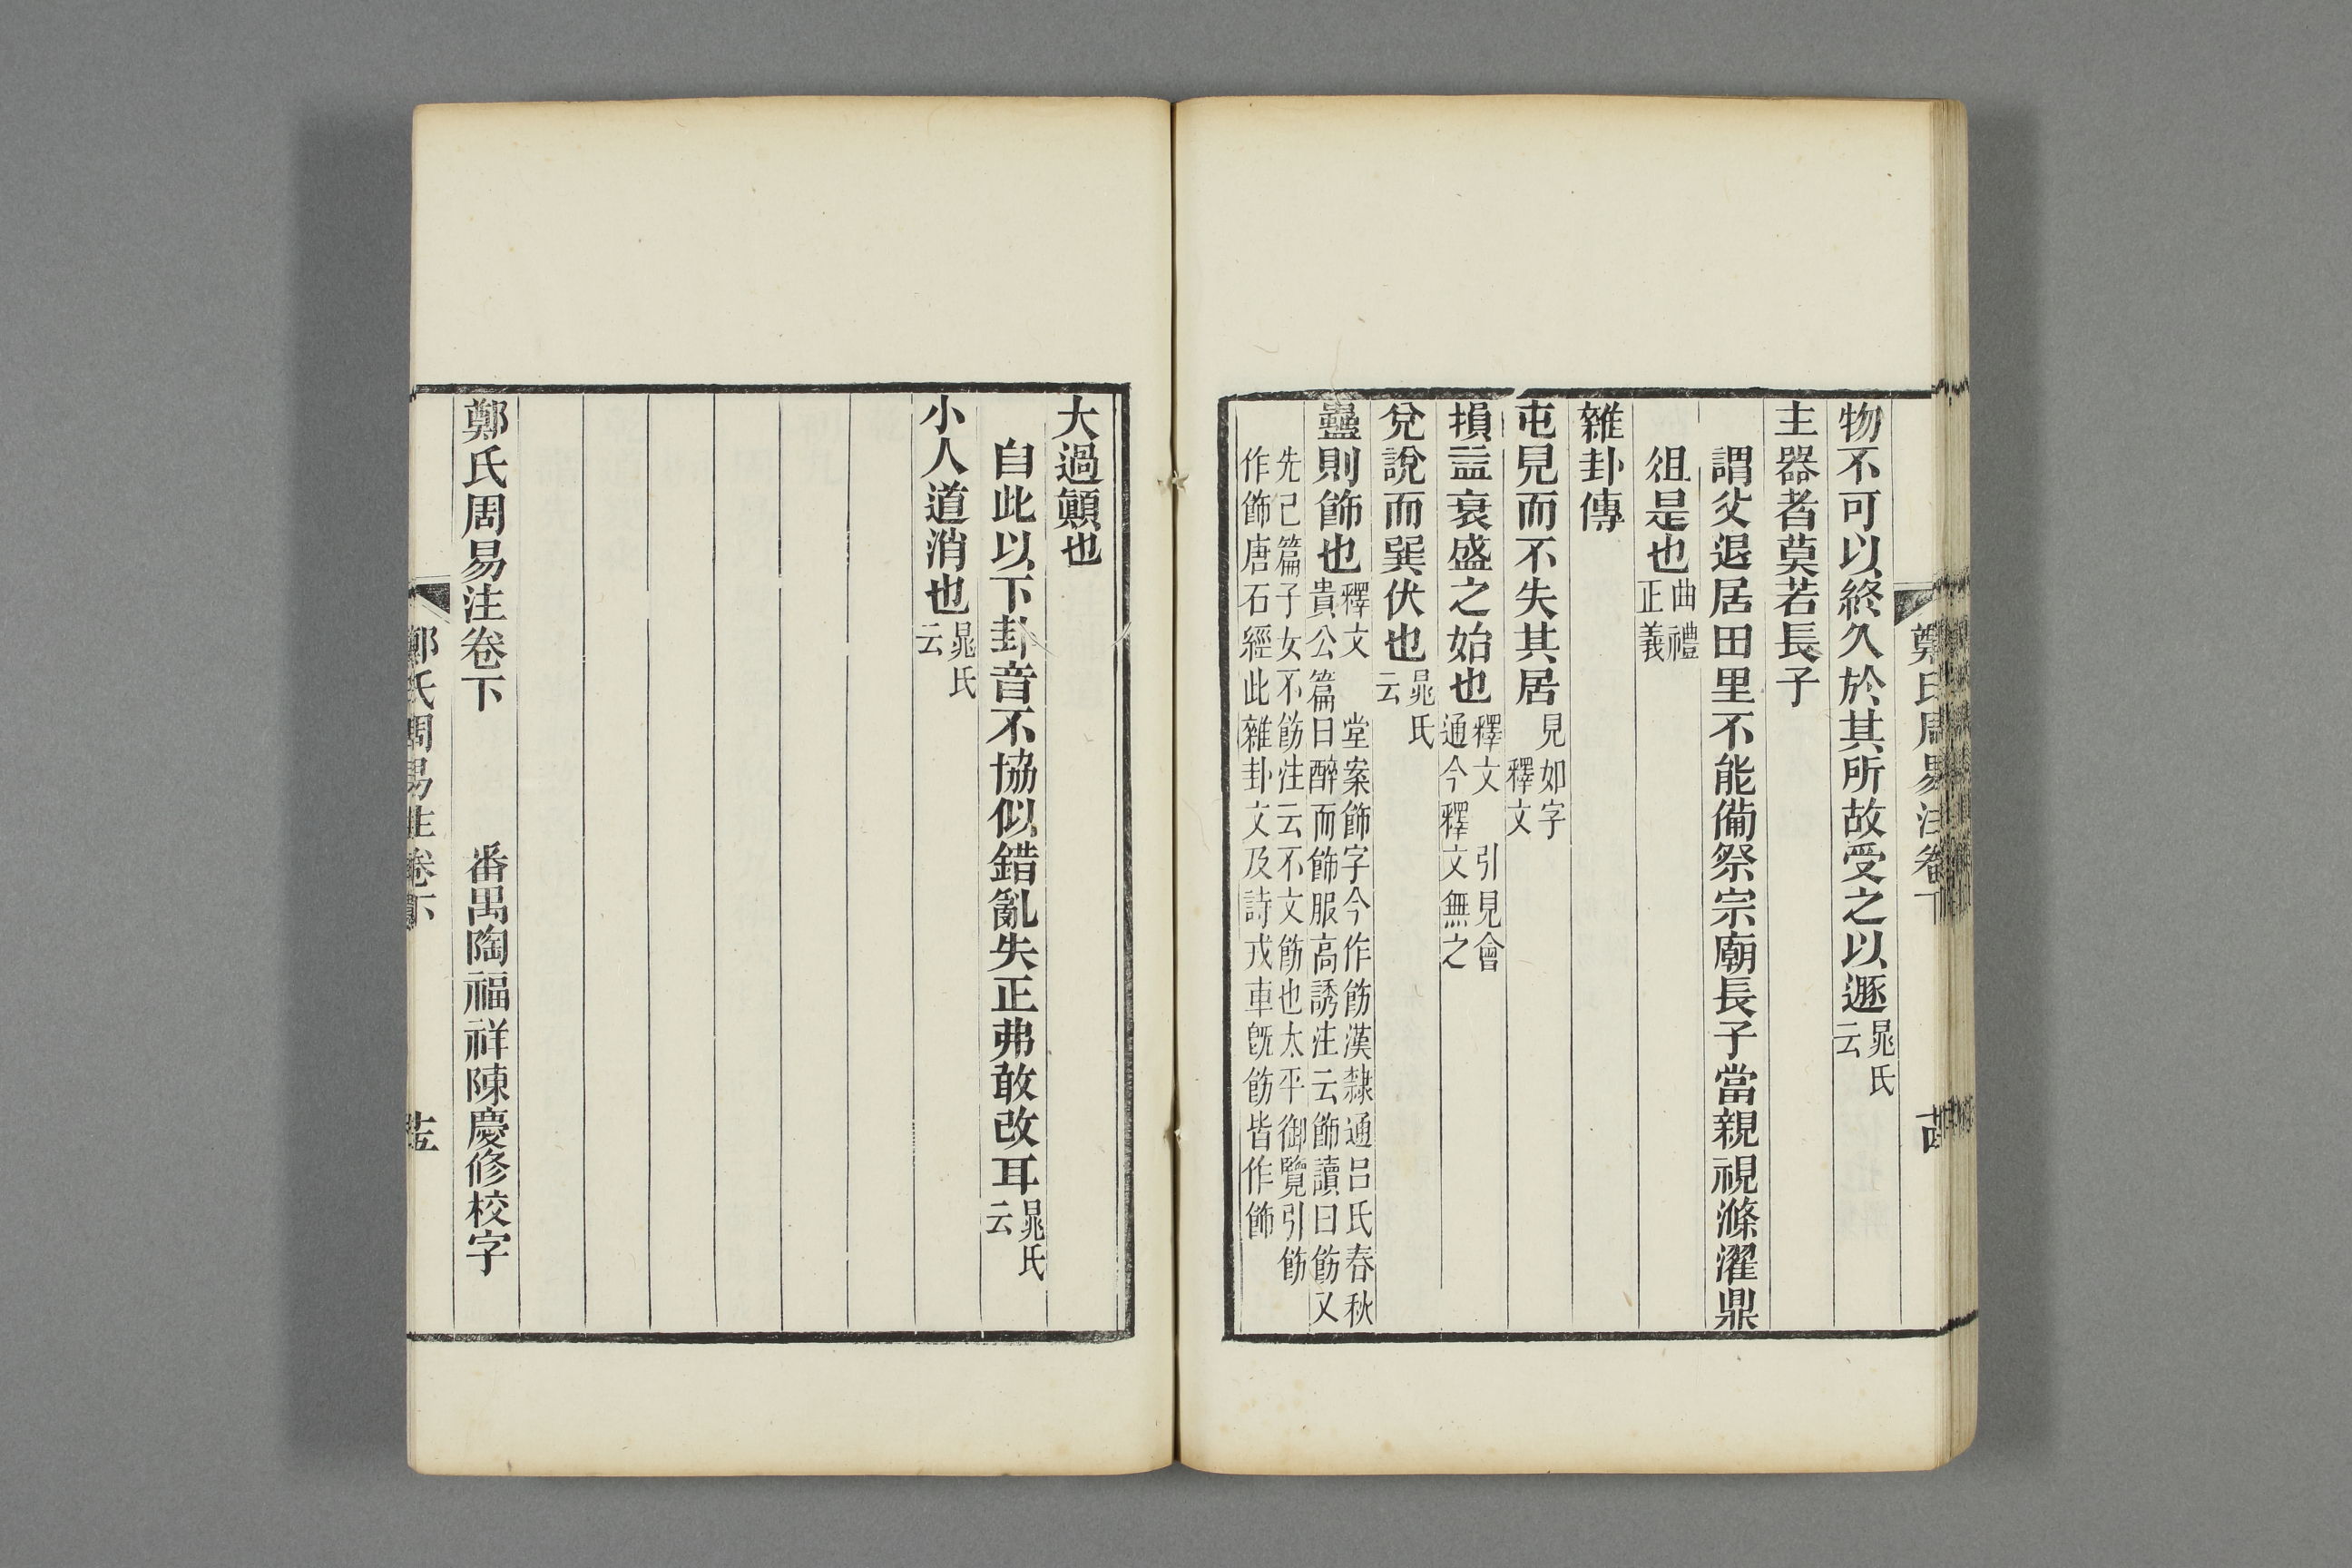 物不可以終久於其所故受之以遯晁氏云
主器者莫若長子
謂父退居田里不能備祭宗廟長子當親視滌濯鼎
俎是也曲禮正義
雜卦傳
屯見而不失其居見如字釋文
損益衰盛之始也釋文 引見會通今釋文無之
兌說而巽伏也晁氏云
蠱則飾也釋文 堂案飾字今作飭漢隸通呂氏春秋貴公篇曰醉而飾服高誘注云飾讀曰飭又
先己篇子女不飭注云不文飭也太平御覽引飭作飾唐石經此雜卦文及詩戎車旣飭皆作飾
大過顚也
自此以下卦音不協似錯亂失正弗敢改耳晁氏云
小人道消也晁氏云
鄭氏周易注卷下 番禺陶福祥陳慶修校字
鄭氏周易注卷下